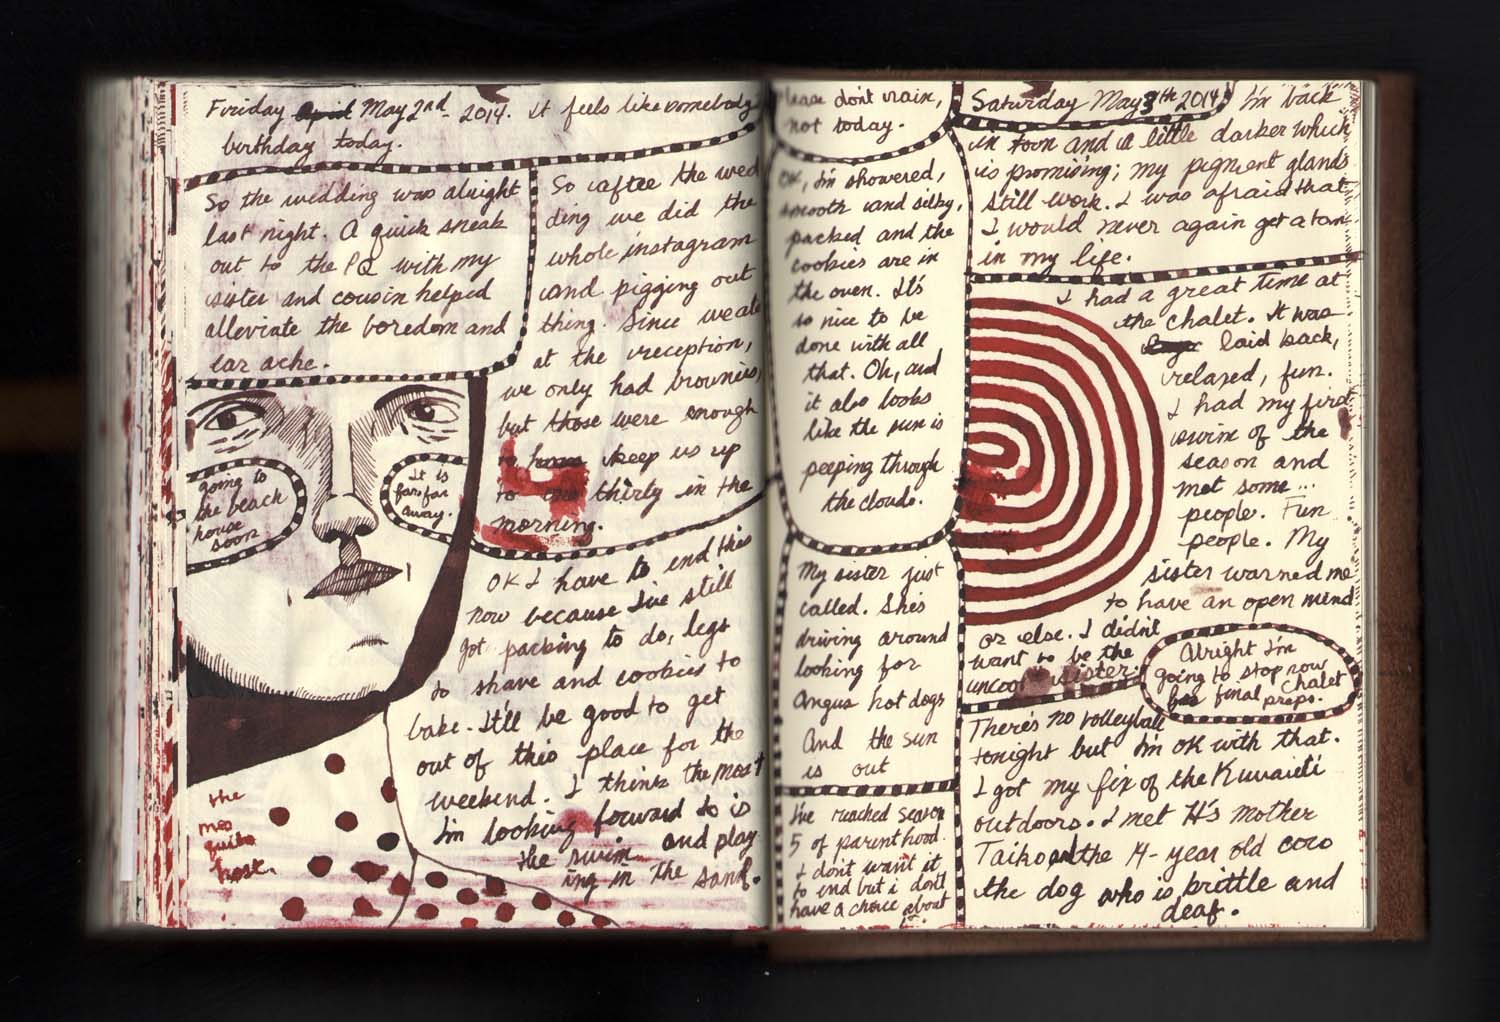 Friday April May 2nd 2014. It feels like somebody
birthday today.
So the wedding was alright
last night. A quick sneak
out to the PQ with my
sister and cousin helped
alleviate the boredom and
ear ache.
So after the wed
ding we did the
whole instagram
and pigging out
thing. Since we ate
at the reception,
we only had brownies,
but those were enough
to have keep us up
to thirty in the
morning.
going to
the beach
house
soon
It is
far far
away.
OK I have to end this
now because I've still
got packing to do, legs
to shave and cookies to
bake. It'll be good to get
out of this place for the
weekend. I think the most
I'm looking forward to is
the swim and play
ing in the sand.
the
mosquito
host.
Please don't rain,
not today.
OK, I'm showered,
smooth and silky,
packed and the
cookies are in
the oven. It's
so nice to be
done with all
that. Oh, and
it also looks
like the sun is
peeping through
the clouds.
My sister just
called. She's
driving around
looking for
Angus hot dogs
And the sun
is out
I've reached season
5 of parenthood.
I don't want it
to end but i don't
have a choice about
Saturday May 3th 2014. I'm back
in town and a little darker which
is promising; my pigment glands
still work. I was afraid that
I would never again get a tan
in my life.
I had a great time at
the chalet. It was
laid back,
relaxed, fun.
I had my first
swim of the
season and
met some...
people. Fun
people. My
sister warned me
to have an open mind
or else. I didn't
want to be the
uncool sister.
Alright I'm
going to stop now
for final chalet
preps.
There's no volleyball
tonight but I'm OK with that.
I got my fix of the Kuwaiti
outdoors. I met H's mother
Taiko and the 14-year old coco
the dog who is brittle and
deaf.